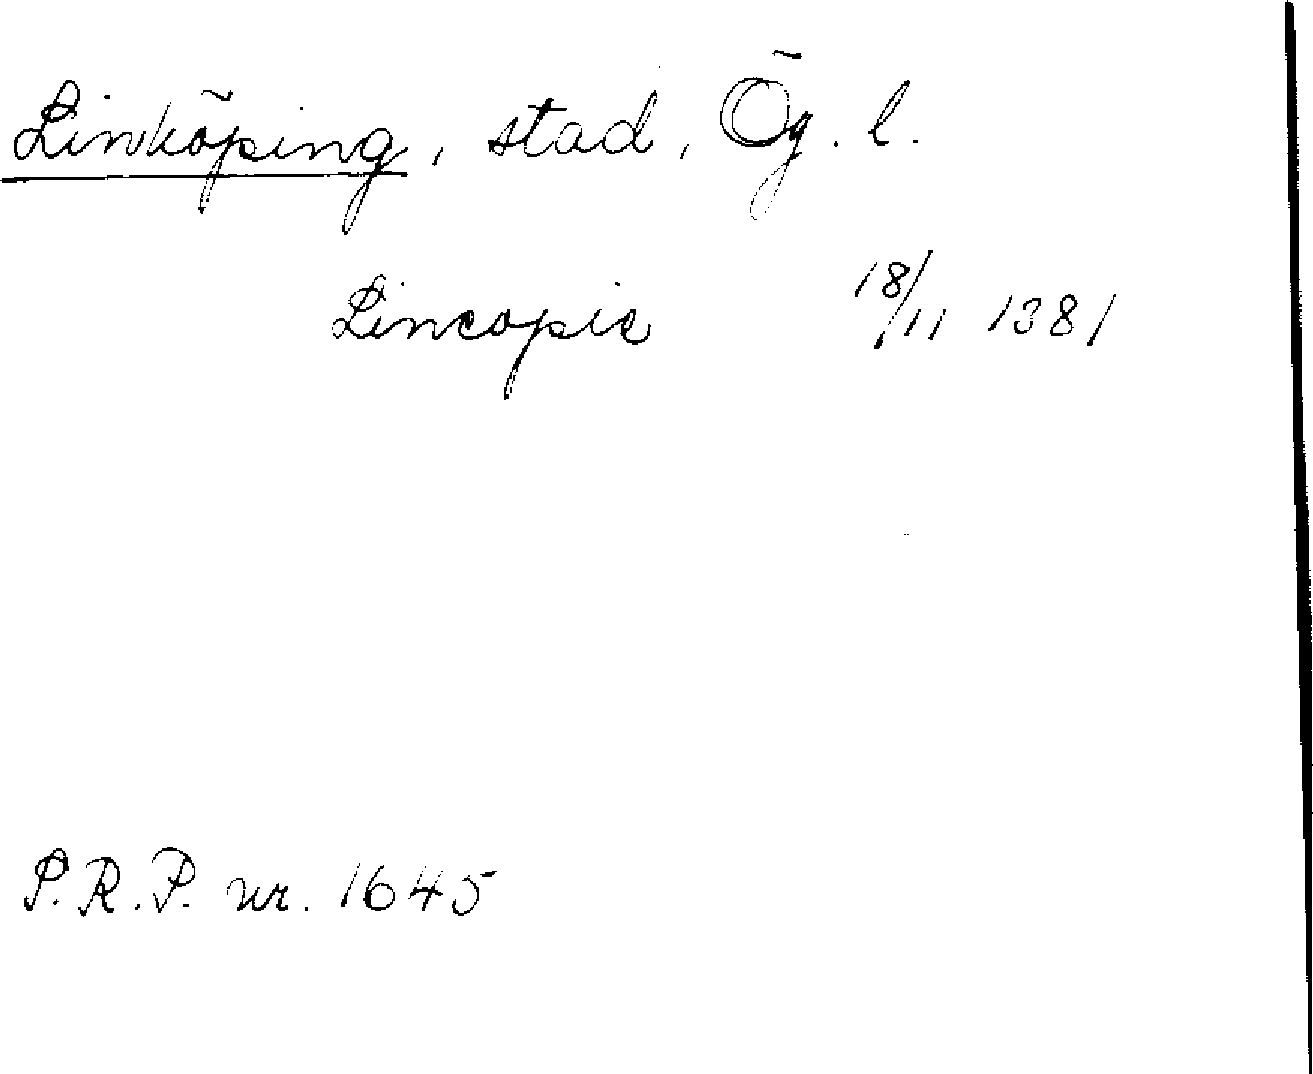 Linköping, stad, Ög. l.
Lincopie 18/11 1381
P.R.P. nr. 1645